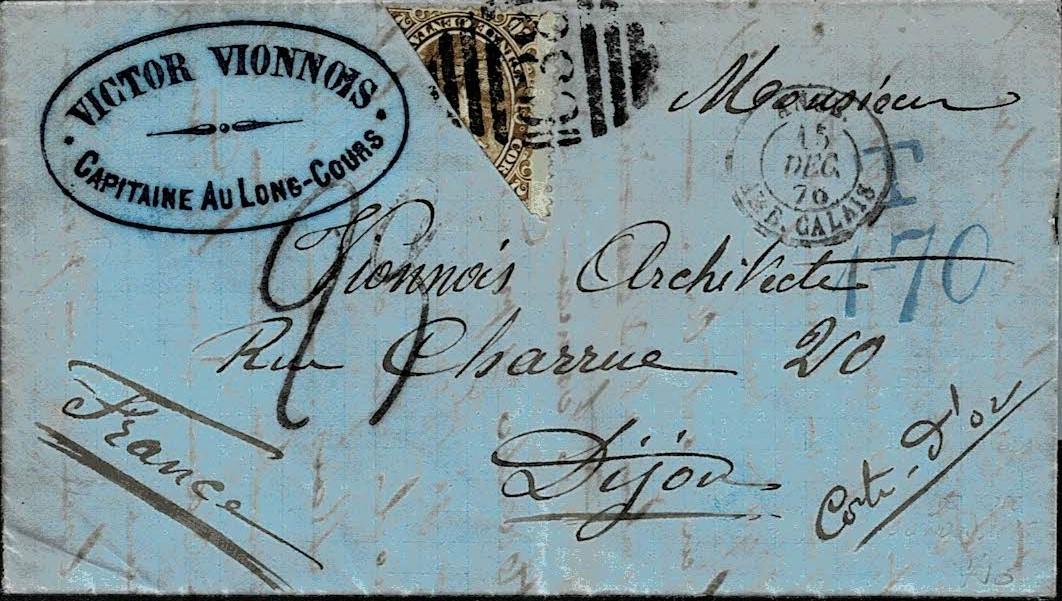 VICTOR VIONNOIS
CAPITAINE AU LONG-COURS
Monsieur
15
DEC.
76
CALAIS
T
1-70
Vionnois Architecte
Rue Charrue 20
Dijon
France
Corte-D'or